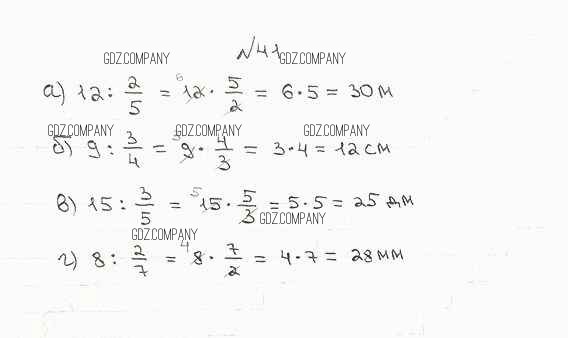 №41
GDZ.COMPANY GDZ.COMPANY
а) 12 : 2/5 = 12 · 5/2 = 6 · 5 = 30 м
GDZ.COMPANY GDZ.COMPANY GDZ.COMPANY
б) 9 : 3/4 = 9 · 4/3 = 3 · 4 = 12 см
в) 15 : 3/5 = 15 · 5/3 = 5 · 5 = 25 дм
GDZ.COMPANY
GDZ.COMPANY
г) 8 : 2/7 = 8 · 7/2 = 4 · 7 = 28 мм